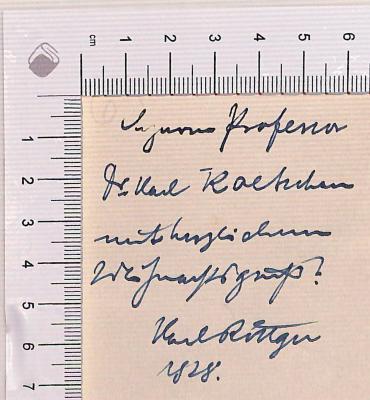 cm 1 2 3 4 5 6
1
2
3
4
5
6
7
Professor
Dr. Karl Koetschau
mit herzlichem
Weihnachtsgruß!
Karl Röttger
1928.